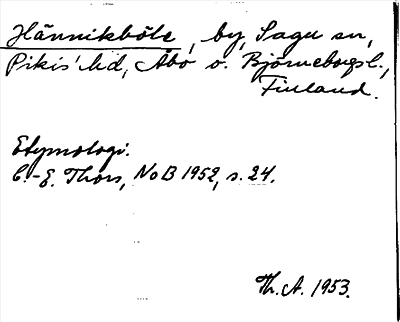 Hännikböle, by, Sagu sn,
Pikis' hd, Åbo o. Björneborgs l.,
Finland.
Etymologi.
C.-E. Thors, NoB 1952, s. 24.
Th. A. 1953.